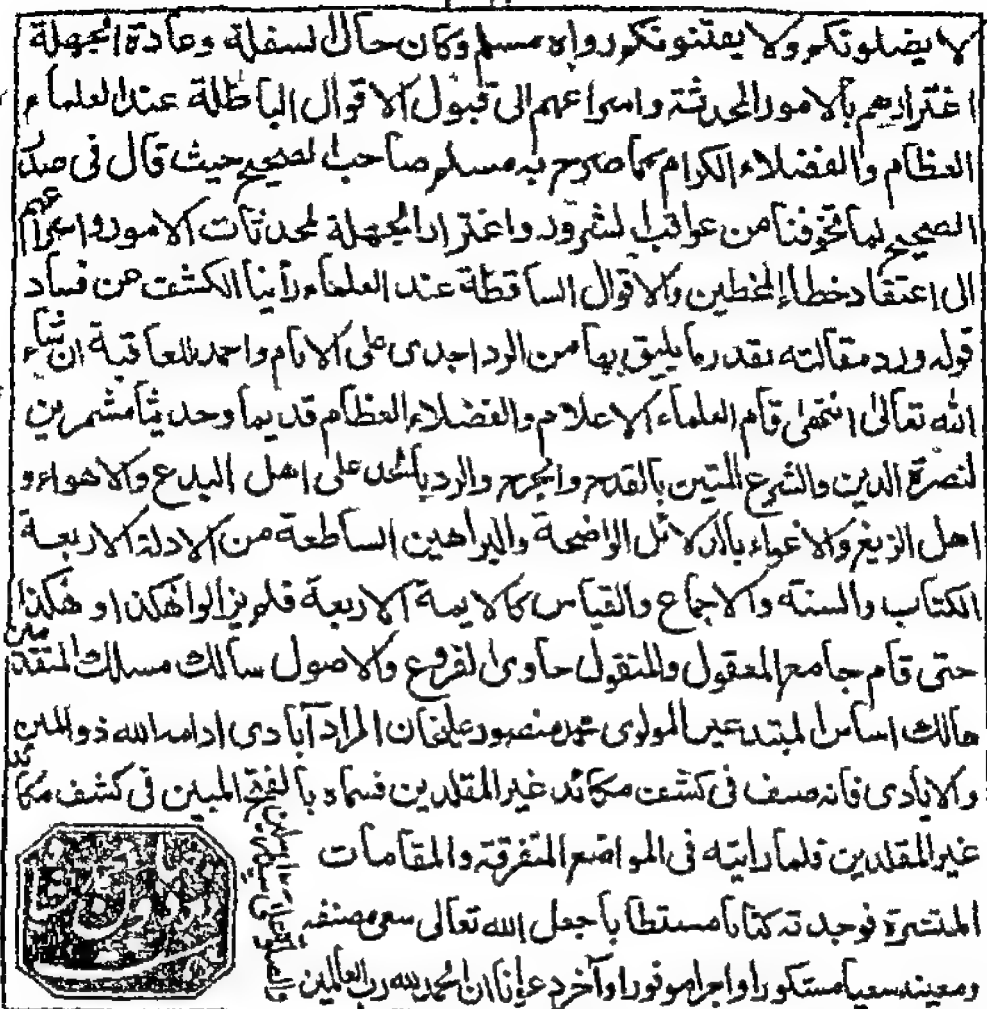 لا يضلونكم ولا يفتنونكم رواه مسلم وكان حال السفلة وعادة الجهلة
اغترارهم بالامور المحدثة واسراعهم الى قبول الاقوال الباطلة عند العلماء
العظام والفضلاء الكرام كما صرح به مسلم صاحب الصحيح حيث قال فى صدر
الصحيح لما تخوفنا من عواقب الشرور واغترار الجهلة لمحدثات الامور واسراعهم
الى اعتقاد خطاء المخطين والاقوال الساقطة عند العلماء رأينا الكشف عن فساد
قوله ورد مقالته بقدر ما يليق بها من الرد اجدى على الانام واحمد للعاقبة ان شاء
الله تعالى انتهى قام العلماء الاعلام والفضلاء العظام قديما وحديثا مشمرين
لنصرة الدين والشرع المتين بالقدح والجرح والرد بالشد على اهل البدع والاهواء و
اهل الزيغ والاغواء بالدلائل الواضحة والبراهين الساطعة من الادلة الاربعة
الكتاب والسنة والاجماع والقياس كالايمة الاربعة فلم يزالوا هكذا و هكذا
حتى قام جامع المعقول والمنقول حاوى الفروع والاصول سالك مسالك المتقدمين
هالك اساس المبتدعين المولوى محمد منصور عليخان المرادآبادى ادامه الله ذو المنن
والايادى فانه صنف فى كشف مكائد غير المقلدين فسماه بالفتح المبين فى كشف مكائد
غير المقلدين فلما رايته فى المواضع المتفرقة والمقامات
المنتشرة فوجدته كتابا مستطابا جعل الله تعالى سعى مصنفه
ومعينه سعيا مشكورا واجرا موفورا وآخر دعوانا ان الحمد لله رب العالمين
والصلوة على سيد المرسلين